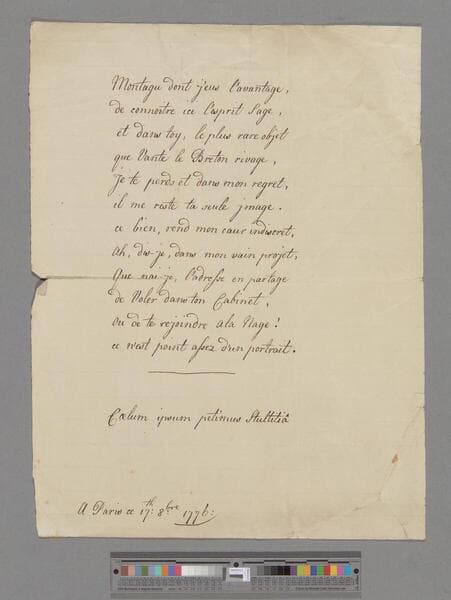 Montagu dont j'eus l'avantage,
de connoitre ice l'esprit Sage,
et dans toy, le plus rare objet
que Vante le Breton rivage,
Je te perds et dans mon regret,
il me reste ta seule jmage.
ce bien, rend mon cœur indiscret,
Ah, dis-je, dans mon vain projet,
Que n'ai-je, l'adresse en partage
de Voler dans ton Cabinet,
Ou de te rejoindre a la Nage!
ce n'est point assez d'un portrait.
Cœlum ipsum petimus Stultitiâ
A Paris ce 17th 8bre 1776: